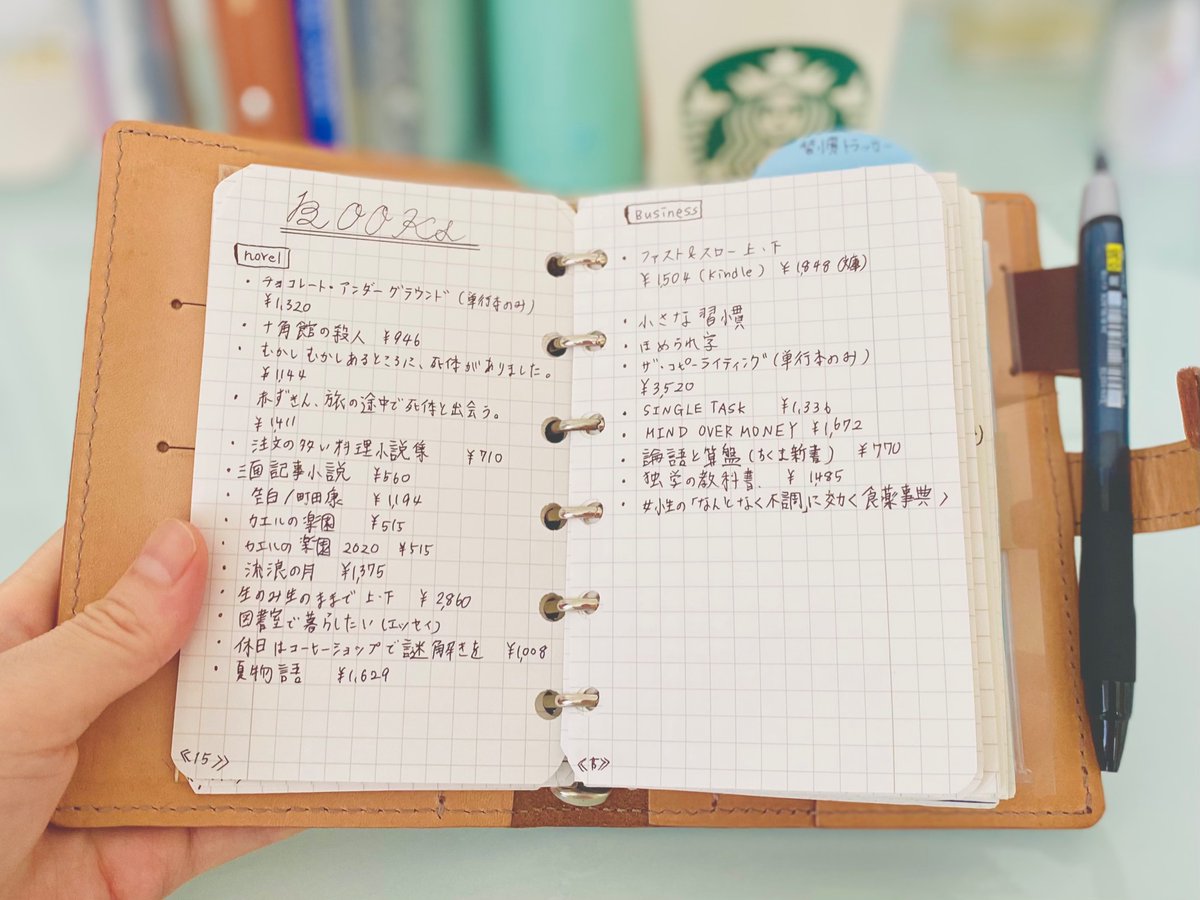 習慣トラッカー
BOOKs
novel
・チョコレート・アンダーグラウンド(単行本のみ)
¥1,320
・十角館の殺人 ¥946
・むかしむかしあるところに、死体がありました。
¥1,144
・赤ずきん、旅の途中で死体と出会う。
¥1,411
・注文の多い料理小説集 ¥710
・三面記事小説 ¥560
・告白/町田康 ¥1,194
・カエルの楽園 ¥515
・カエルの楽園 2020 ¥515
・流浪の月 ¥1,375
・生のみ生のままで 上・下 ¥2,860
・図書室で暮らしたい(エッセイ)
・休日はコーヒーショップで謎解きを ¥1,008
・夏物語 ¥1,629
《15》
Business
・ファスト&スロー 上・下
¥1,504(Kindle) ¥1,848(文庫)
・小さな習慣
・ほめられ字
・ザ・コピーライティング(単行本のみ)
¥3,520
・SINGLE TASK ¥1,336
・MIND OVER MONEY ¥1,672
・論語と算盤(ちくま新書) ¥770
・独学の教科書. ¥1,485
・女性の「なんとなく不調」に効く食薬事典